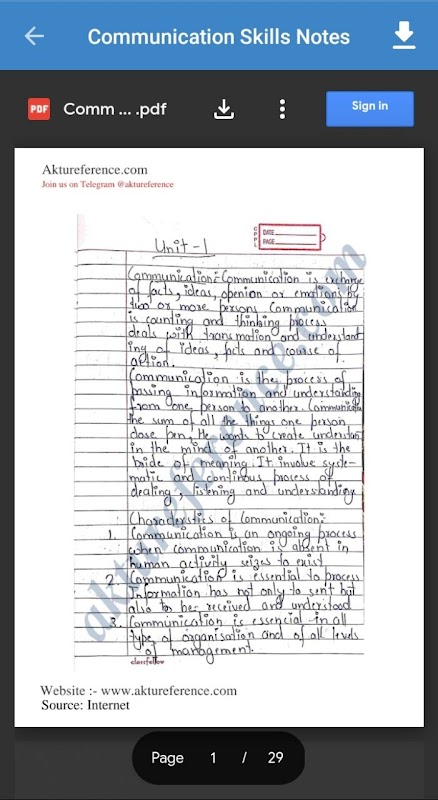 Communication Skills Notes
PDF
Comm ... .pdf
Sign in
Aktureference.com
Join us on Telegram @aktureference
DATE
PAGE
Unit-1
Communication:- Communication is exchange
of facts, ideas, openion or emotions by
two or more persons. Communication
is counting and thinking process
deals with transmation and understand
ing of ideas, facts and course of
action.
Communication is the process of
passing information and understanding
from one person to another. Communicatio
the sum of all the things one person
dose pen, He wants to create understan
in the mind of another. It is the
bride of meaning. It involve syste-
matic and continous process of
dealing, listening and understanding
Characteristics of Communication:-
1. Communication is an ongoing process
when communication is absent in
human activity seizes to exist
2. Communication is essential to process
Information has not only to sent but
also to be received and understood
3. Communication is essencial in all
type of organisation and of all levels
of management.
classfellow
aktureference.com
Website :- www.aktureference.com
Source: Internet
Page 1 / 29